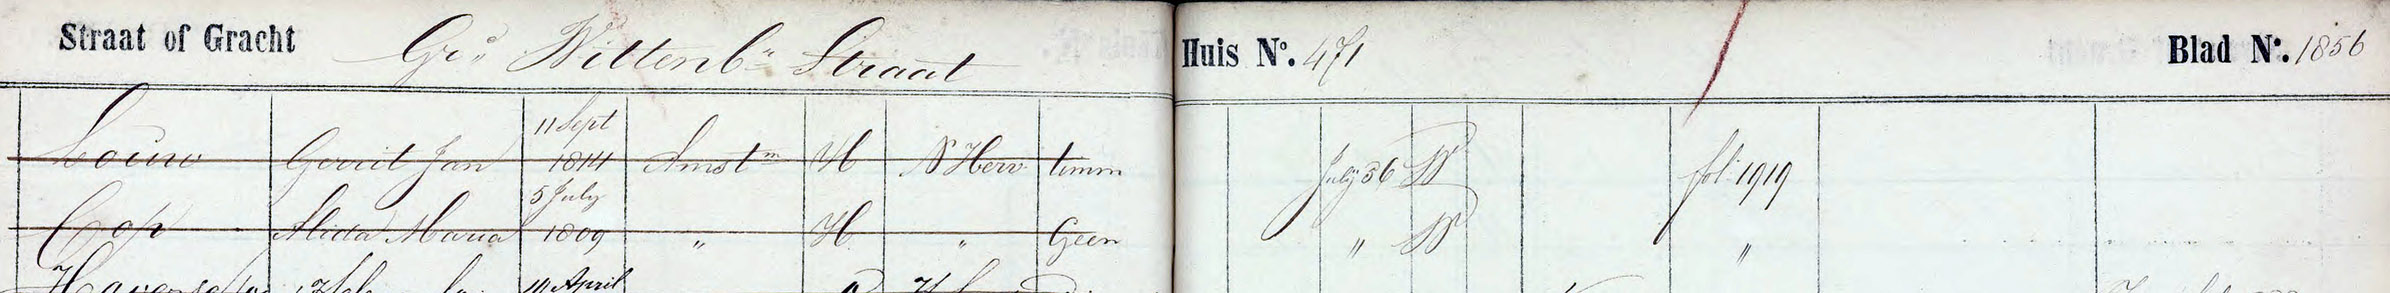 Straat of Gracht Gro Wittenbn Straat Huis No. 471 Blad No. 1856
11 Sept
Louw Gerrit Jan 1814 Amstm H N Herv timm July 56 W fol. 1919
5 July
Cop Alida Maria 1809 " H " Geen " W "
14 April